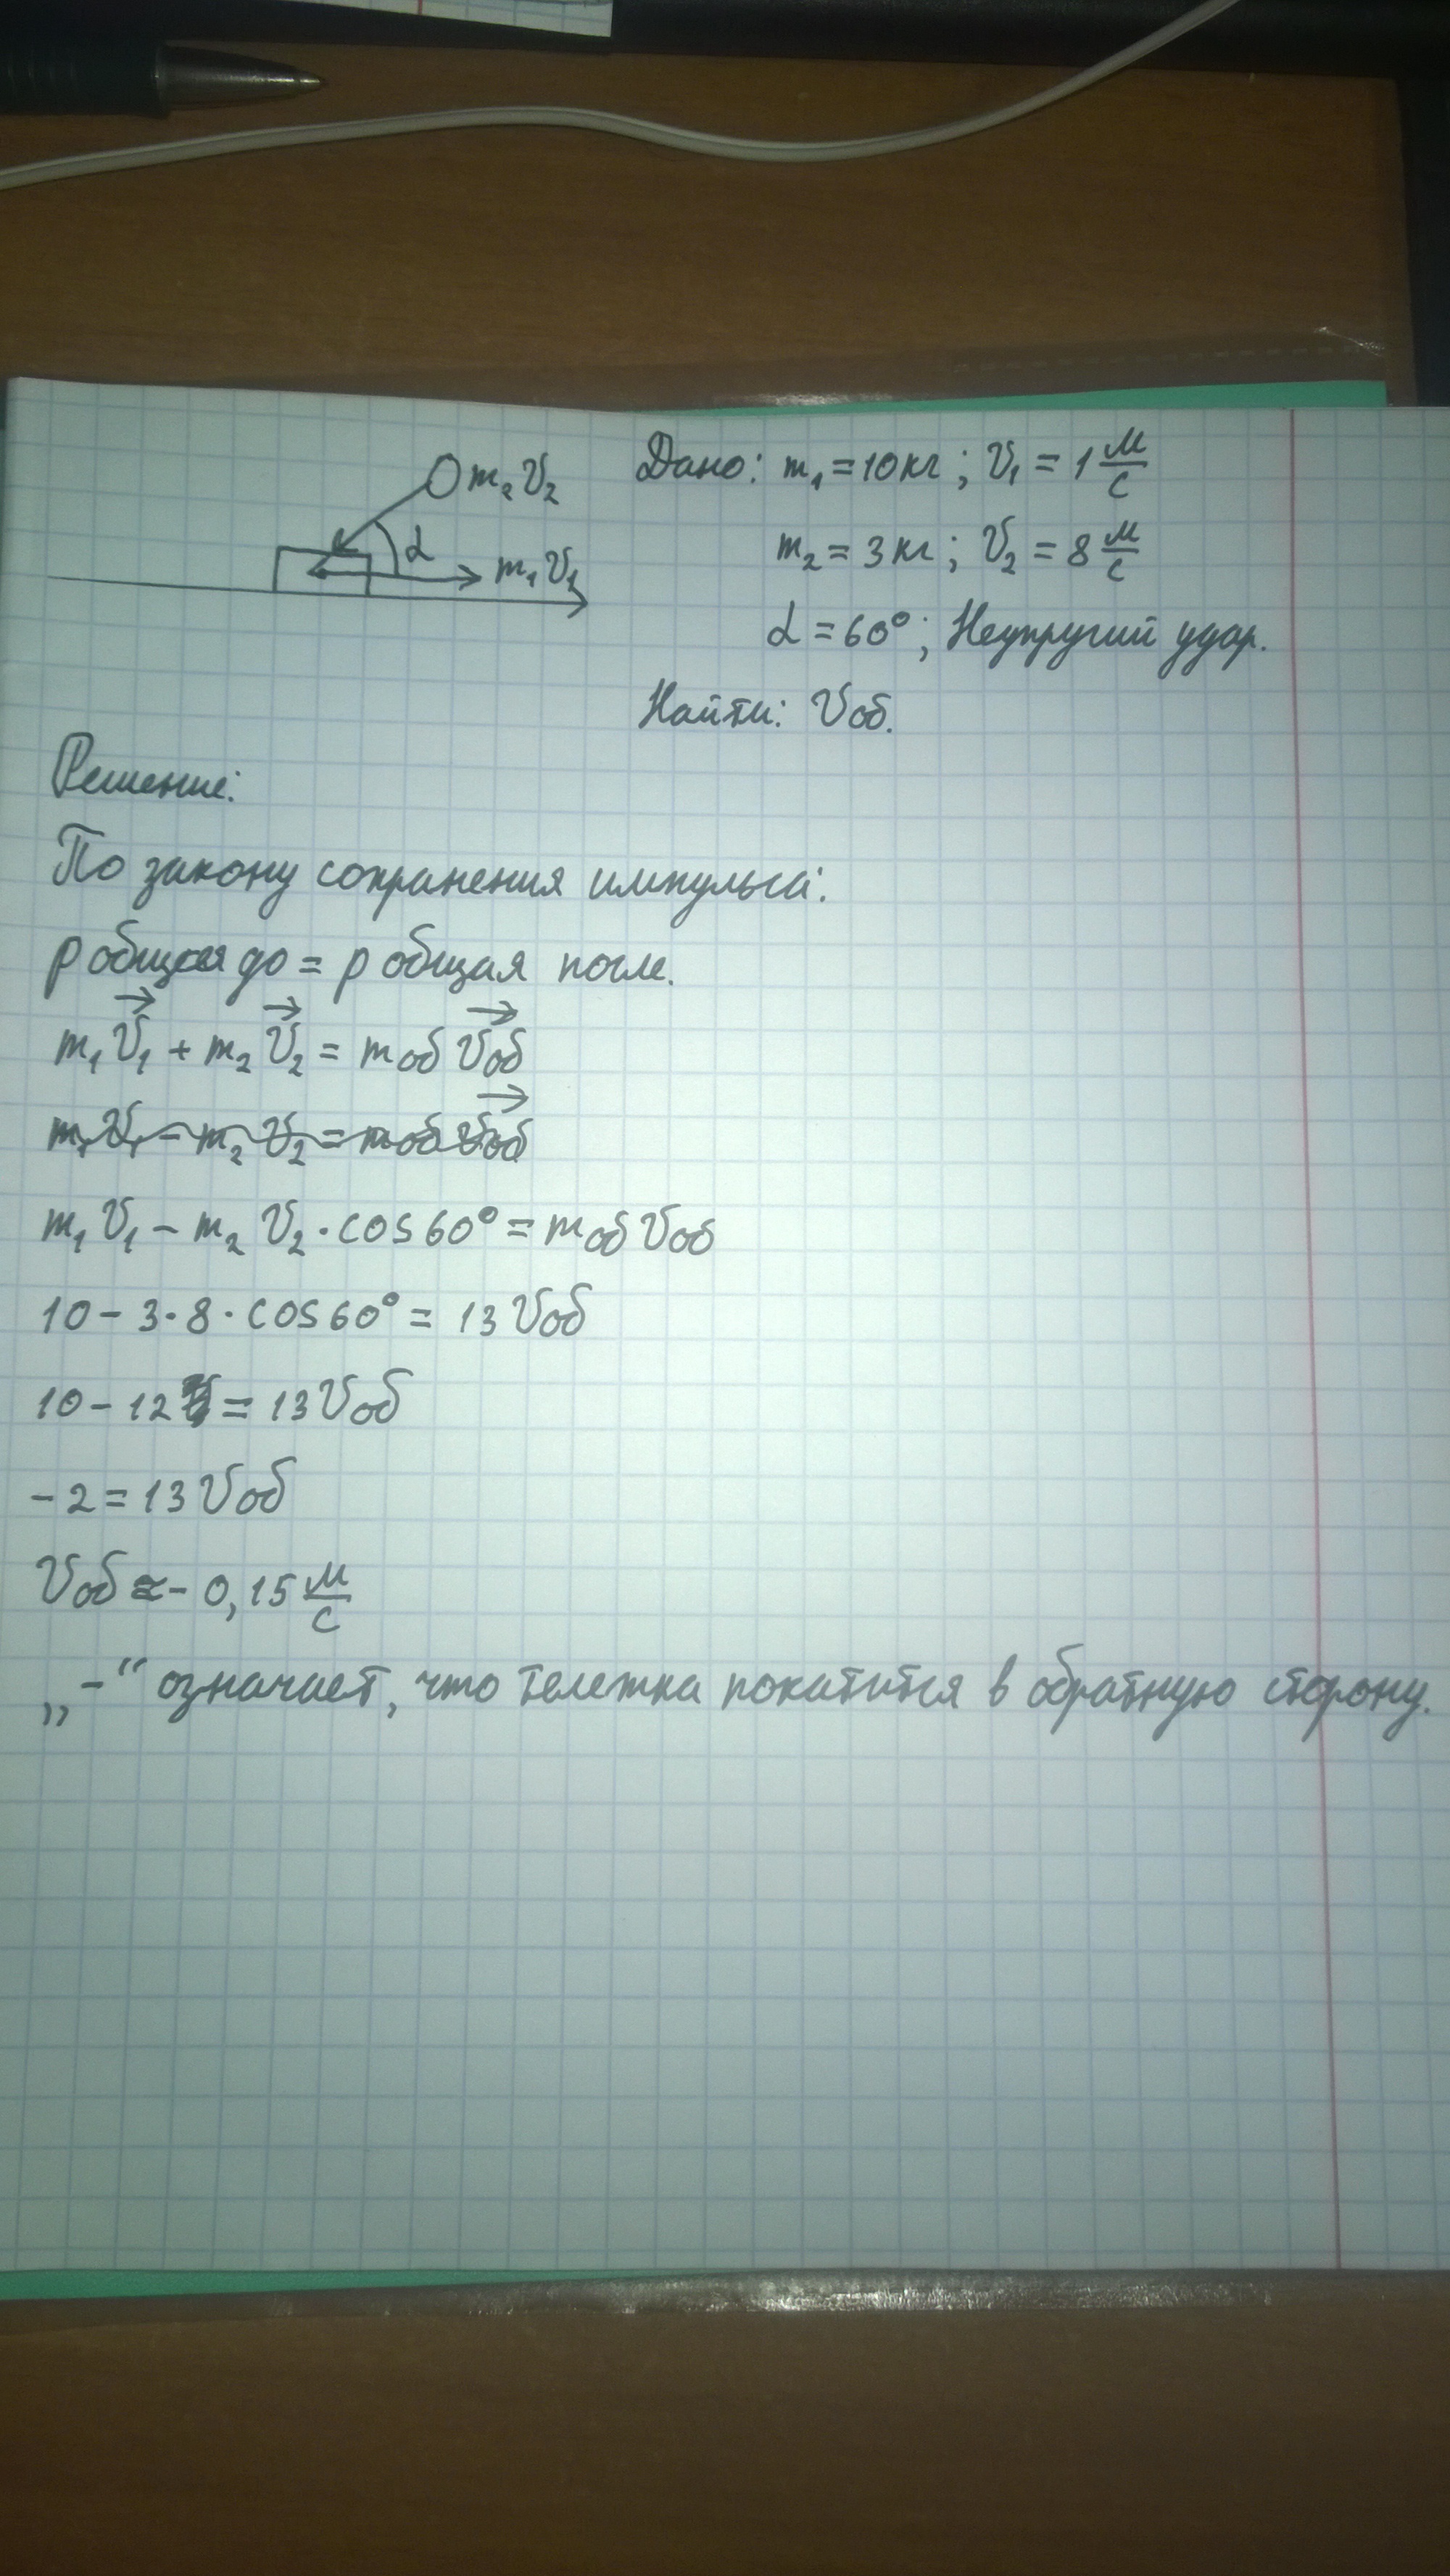 m₂ V₂
α
m₁ V₁
Дано: m₁ = 10 кг ; V₁ = 1 м/с
m₂ = 3 кг ; V₂ = 8 м/с
α = 60° ; Неупругий удар.
Найти: Vоб.
Решение:
По закону сохранения импульса:
р общая до = р общая после.
m₁V⃗₁ + m₂V⃗₂ = mоб V⃗об
m₁V₁ - m₂ V₂ = mоб V⃗об
m₁ V₁ - m₂ V₂ · cos 60° = mоб Vоб
10 - 3 · 8 · cos 60° = 13 Vоб
10 - 12 = 13 Vоб
- 2 = 13 Vоб
Vоб ≈ - 0,15 м/с
„-“ означает, что тележка покатится в обратную сторону.